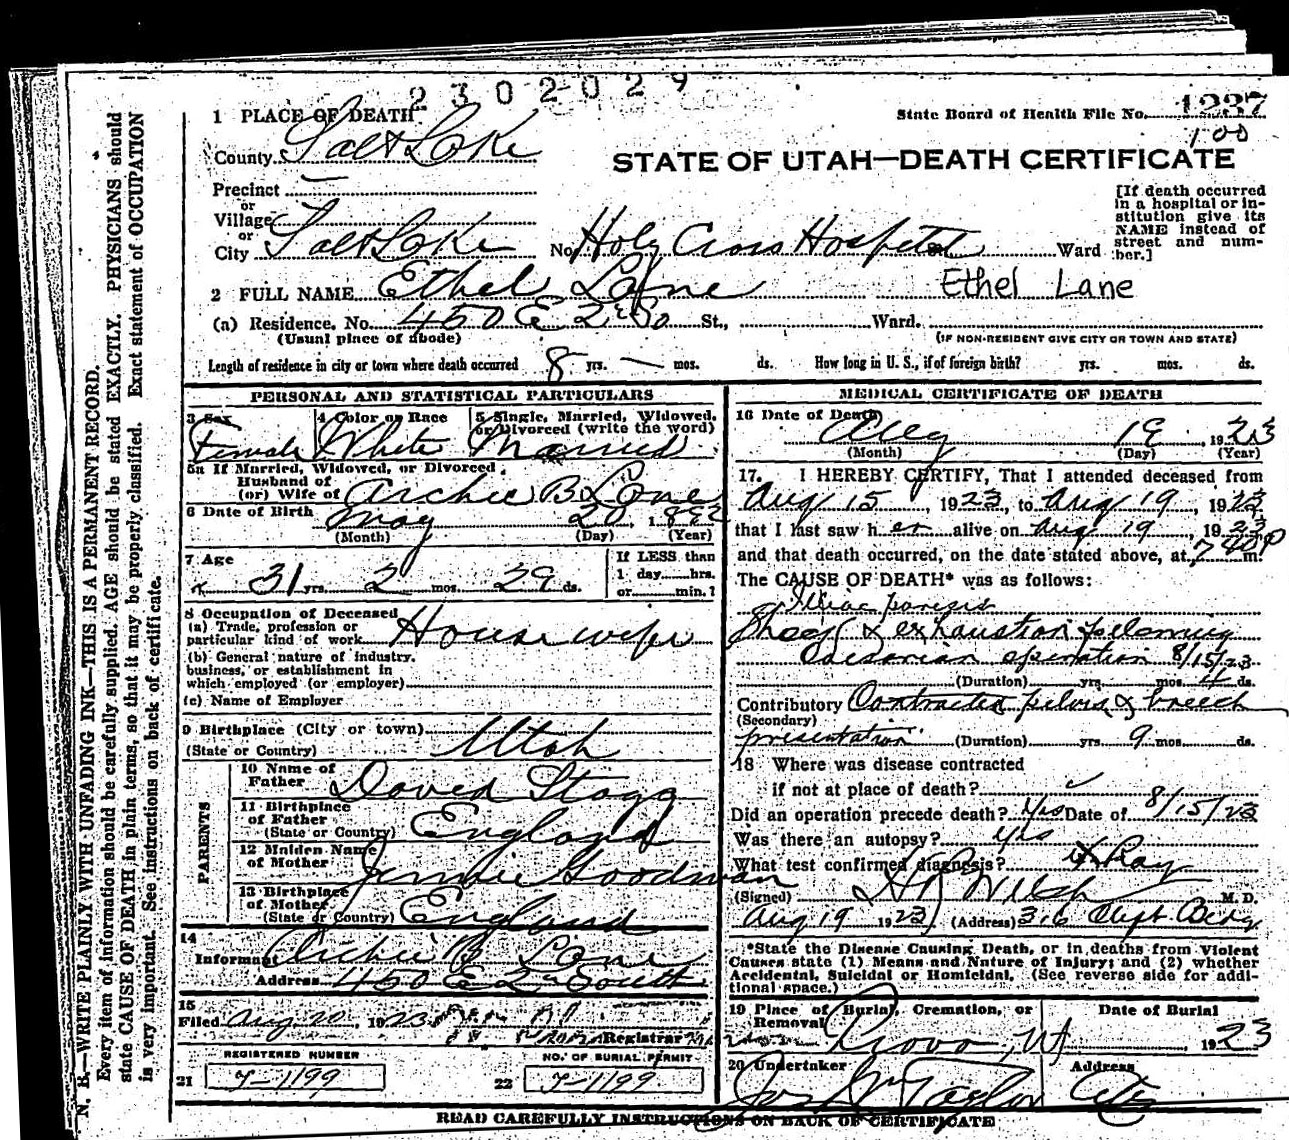 2 3 0 2 0 2 9
1 PLACE OF DEATH
State Board of Health File No. 1237
100
County Salt Lake
STATE OF UTAH—DEATH CERTIFICATE
Precinct
or
Village
or
City Salt Lake No. Holy Cross Hospital St. Ward
[If death occurred
in a hospital or in-
stitution give its
NAME instead of
street and num-
ber.]
2 FULL NAME Ethel Lane Ethel Lane
(a) Residence. No. 450 E 2nd So St., Ward.
(Usual place of abode) (IF NON-RESIDENT GIVE CITY OR TOWN AND STATE)
Length of residence in city or town where death occurred 8 yrs. — mos. ds. How long in U. S., if of foreign birth? yrs. mos. ds.
PERSONAL AND STATISTICAL PARTICULARS
3 Sex 4 Color or Race 5 Single, Married, Widowed,
or Divorced (write the word)
Female White Married
5a If Married, Widowed, or Divorced,
Husband of
(or) Wife of Archie B Lane
6 Date of Birth May 20, 1892
(Month) (Day) (Year)
7 Age 31 yrs 2 mos 29 ds.
If LESS than
1 day hrs.
or min.?
8 Occupation of Deceased
(a) Trade, profession or
particular kind of work Housewife
(b) General nature of industry.
business, or establishment in
which employed (or employer)
(c) Name of Employer
9 Birthplace (City or town)
(State or Country) Utah
PARENTS
10 Name of
Father David Stagg
11 Birthplace
of Father
(State or Country) England
12 Maiden Name
of Mother Jennie Goodman
13 Birthplace
of Mother
(State or Country) England
14
Informant Archie B Lane
Address 450 E 2 South
15
Filed Aug 20, 1923
Registrar
REGISTERED NUMBER NO. OF BURIAL PERMIT
21 J-1199 22 J-1199
MEDICAL CERTIFICATE OF DEATH
16 Date of Death
Aug 19, 1923
(Month) (Day) (Year)
17. I HEREBY CERTIFY, That I attended deceased from
Aug 15, 1923, to Aug 19, 1923
that I last saw her alive on Aug 19, 1923
and that death occurred, on the date stated above, at 7 40 P m.
The CAUSE OF DEATH* was as follows:
Illiac paresis
Shock & exhaustion following
Cesarian operation 8/15/23
(Duration) yrs. mos. 4 ds.
Contributory Contracted pelvis & breech
(Secondary)
presentation (Duration) yrs. 9 mos. ds.
18 Where was disease contracted
if not at place of death?
Did an operation precede death? yes Date of 8/15/23
Was there an autopsy? yes
What test confirmed diagnosis? X Ray
(Signed) M. D.
Aug 19 1923 (Address) 316
*State the Disease Causing Death, or in deaths from Violent
Causes state (1) Means and Nature of Injury; and (2) whether
Accidental, Suicidal or Homicidal. (See reverse side for addi-
tional space.)
19 Place of Burial, Cremation, or
Removal Date of Burial
Provo, Ut 1923
20 Undertaker Address
Jos Wm Taylor City
READ CAREFULLY INSTRUCTIONS ON BACK OF CERTIFICATE
N. B.—WRITE PLAINLY WITH UNFADING INK—THIS IS A PERMANENT RECORD.
Every item of information should be carefully supplied. AGE should be stated EXACTLY. PHYSICIANS should
state CAUSE OF DEATH in plain terms, so that it may be properly classified. Exact statement of OCCUPATION
is very important. See instructions on back of certificate.